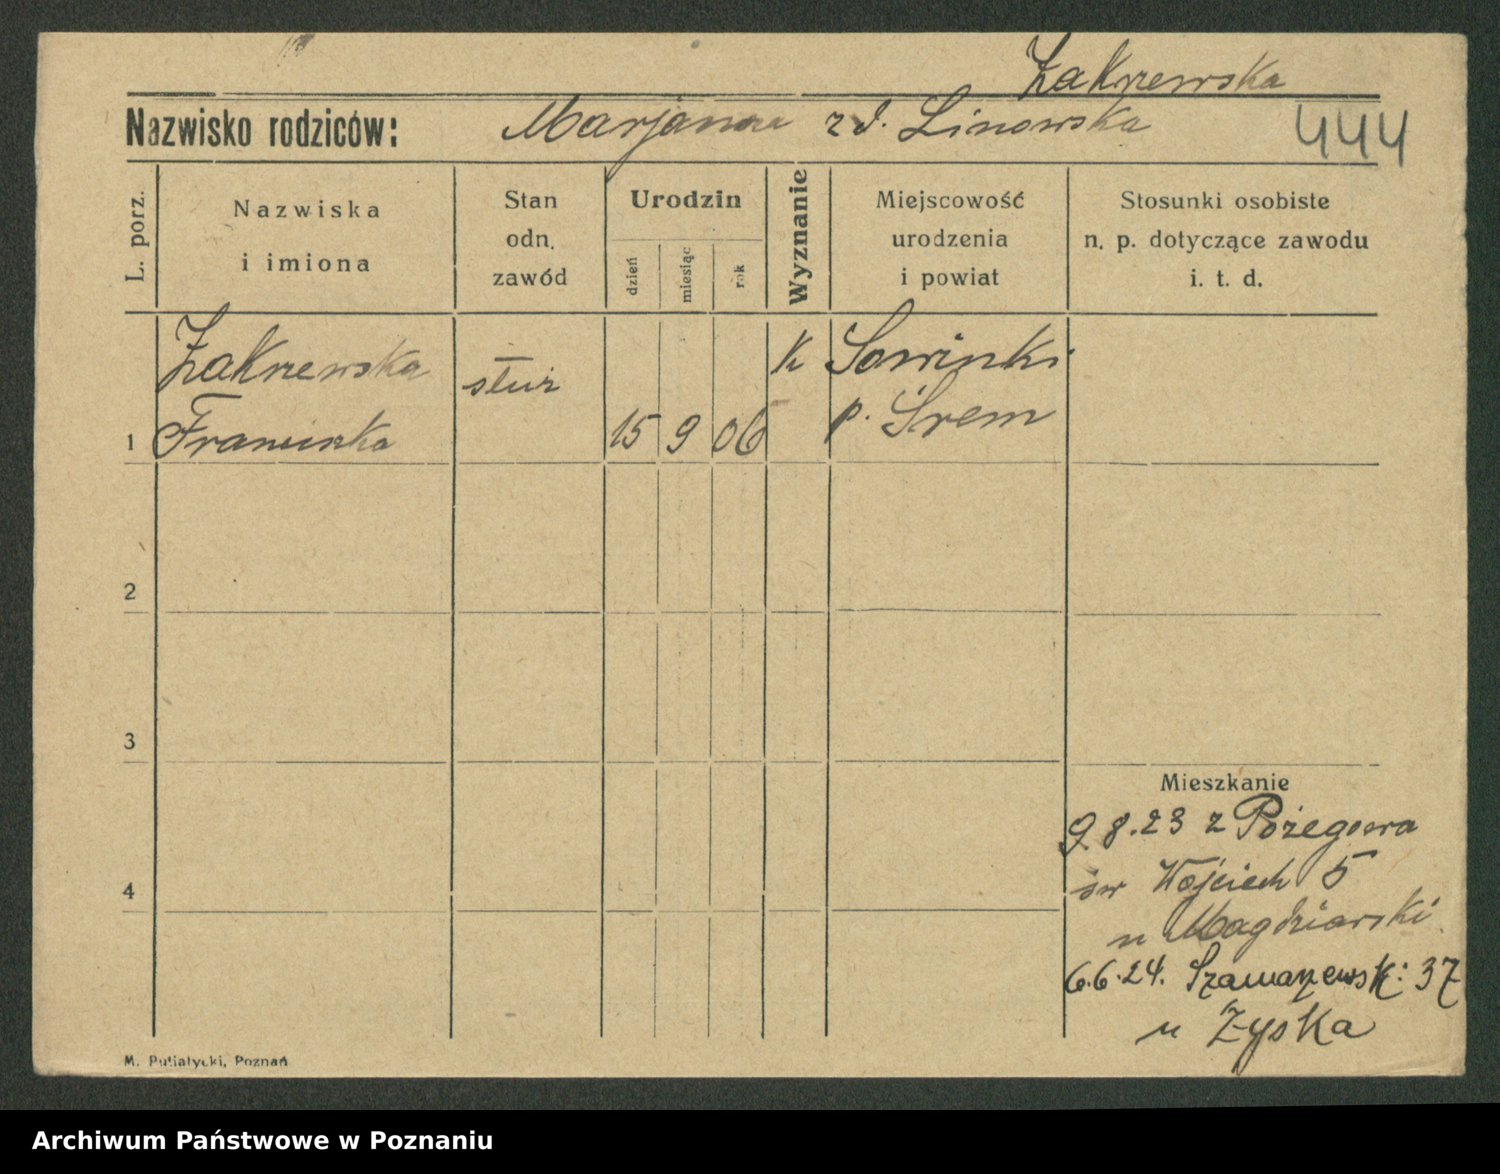 Zakrzewska
Nazwisko rodziców: Marjanna z d. Linowska 444
L. porz.
Nazwiska
i imiona
Stan
odn.
zawód
Urodzin
dzień
miesiąc
rok
Wyznanie
Miejscowość
urodzenia
i powiat
Stosunki osobiste
n. p. dotyczące zawodu
i. t. d.
Zakrzewska służ k Sowinki
1 Franciszka 15 9 06 p. Śrem
2
3
Mieszkanie
9.8.23 z Pożegowa
św Wojciech 5
4
u Magdziarski
6.6.24. 37
u Zyska
M. Putiatycki, Poznań
Archiwum Państwowe w Poznaniu